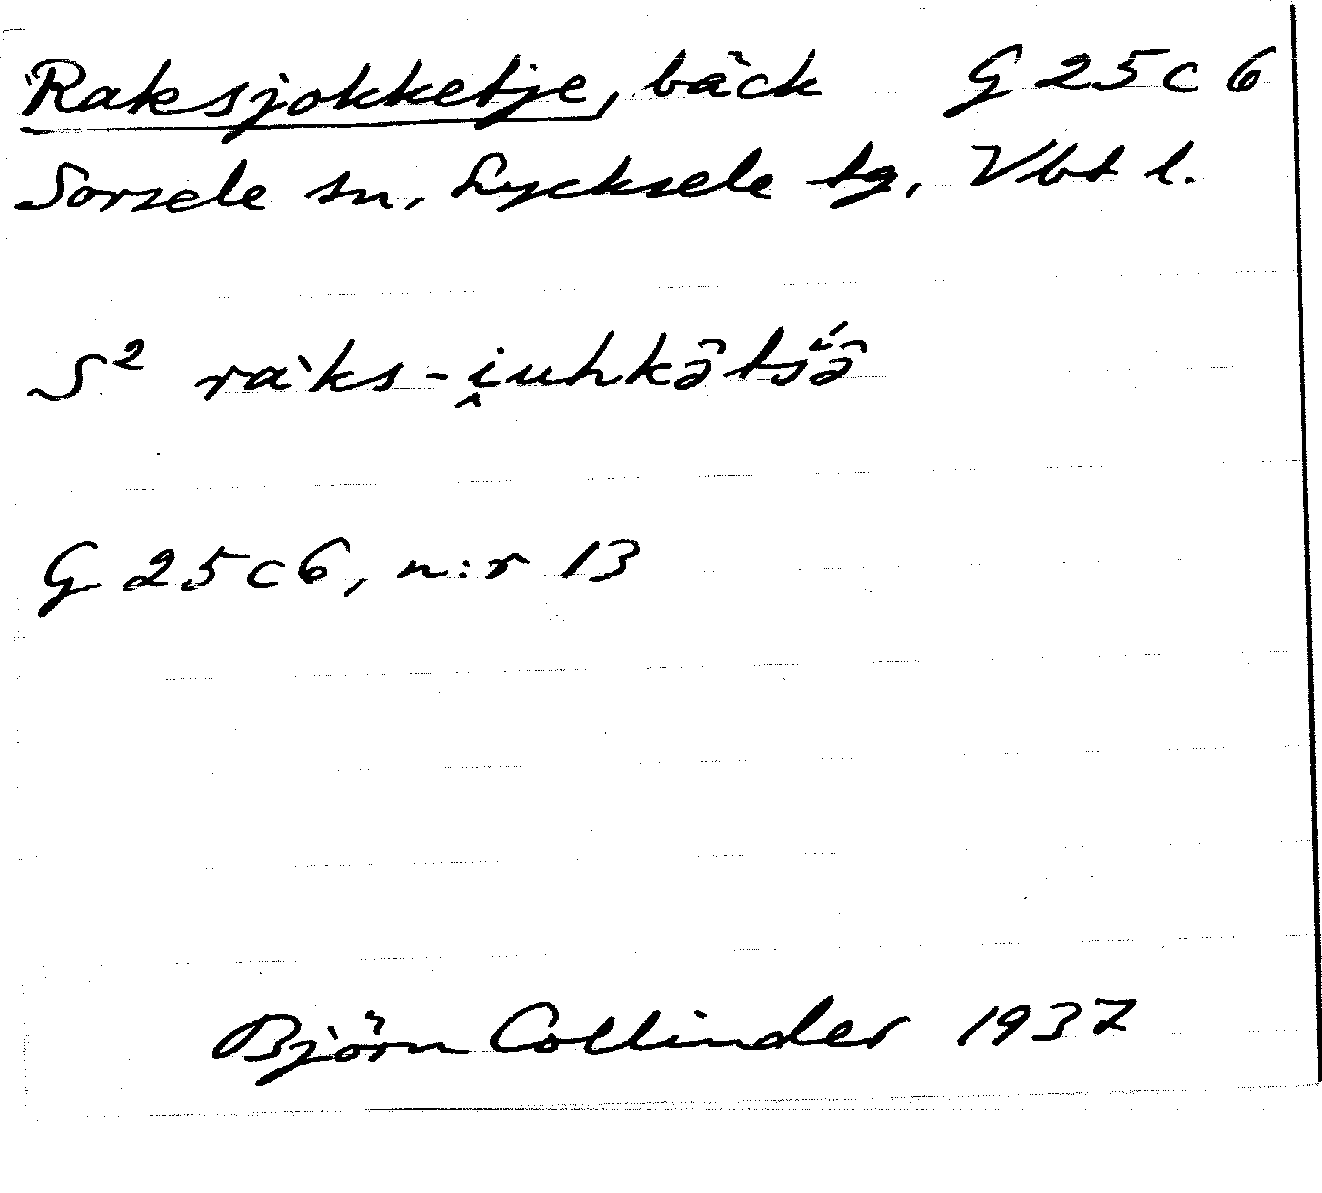 Raksjokketje, bäck G 25 c 6
Sorsele sn, Lycksele tg, Vbt l.
S² ràks-i̭uhkə̂tśə̂
G 25 c 6, n:r 13
Björn Collinder 1937